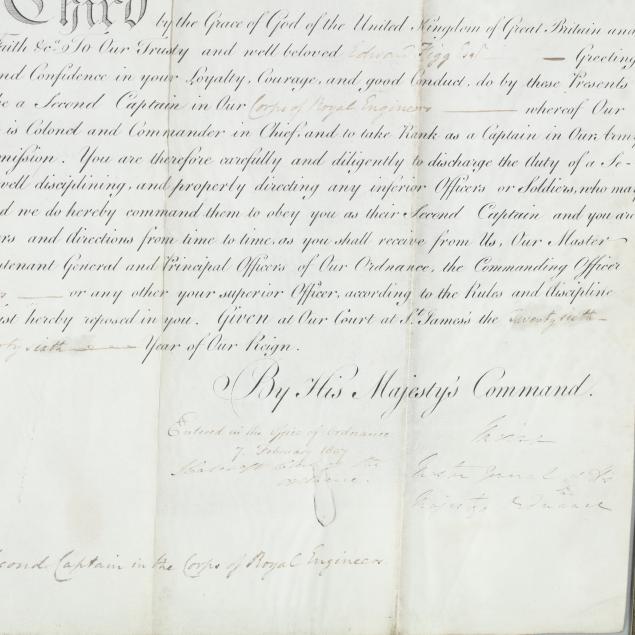 Third by the Grace of God of the United Kingdom of Great Britain and
Faith &c. To Our Trusty and well beloved Edward Figg Esqr Greeting
and Confidence in your Loyalty, Courage, and good Conduct, do by these Presents
be a Second Captain in Our Corps of Royal Engineers whereof Our
is Colonel and Commander in Chief, and to take Rank as a Captain in Our Army
mission. You are therefore carefully and diligently to discharge the duty of a Se-
well disciplining, and properly directing any inferior Officers or Soldiers, who may
d we do hereby command them to obey you as their Second Captain and you are
ers and directions from time to time, as you shall receive from Us, Our Master
utenant General and Principal Officers of Our Ordnance, the Commanding Officer
or any other your superior Officer, according to the Rules and discipline
ust hereby reposed in you. Given at Our Court at St. James's the Twenty sixth
ty sixth Year of Our Reign.
By His Majesty's Command.
Entered in the Office of Ordnance
7. February 1807
Ordnance.
Master General of His
Majestys Ordnance
Second Captain in the Corps of Royal Engineers